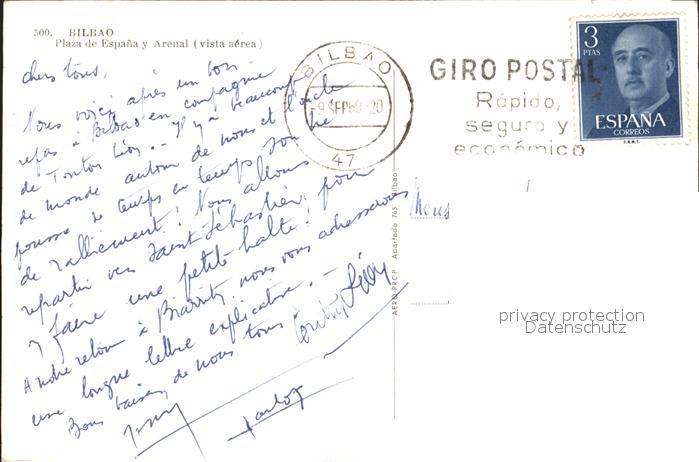 500. BILBAO
Plaza de España y Arenal (vista aérea)
chers tous,
Nous voici après un bon
repas à Bilbao en compagnie
de Tonton Léon.. Il y a beaucoup
de monde autour de nous et l'oncle
pousse de temps en temps son cri
de ralliement! Nous allons
repartir vers Saint Sébastien pour
y faire une petite halte!
retour à Biarritz nous vous adresserons
une longue lettre explicative. -
Bons baisers de nous tous
BILBAO
47
GIRO POSTAL
Rápido,
seguro y
económico
3
PTAS
ESPAÑA
CORREOS
F.N.M.T.
AERO-PRCP Apartado 765 Bilbao
privacy protection
Datenschutz